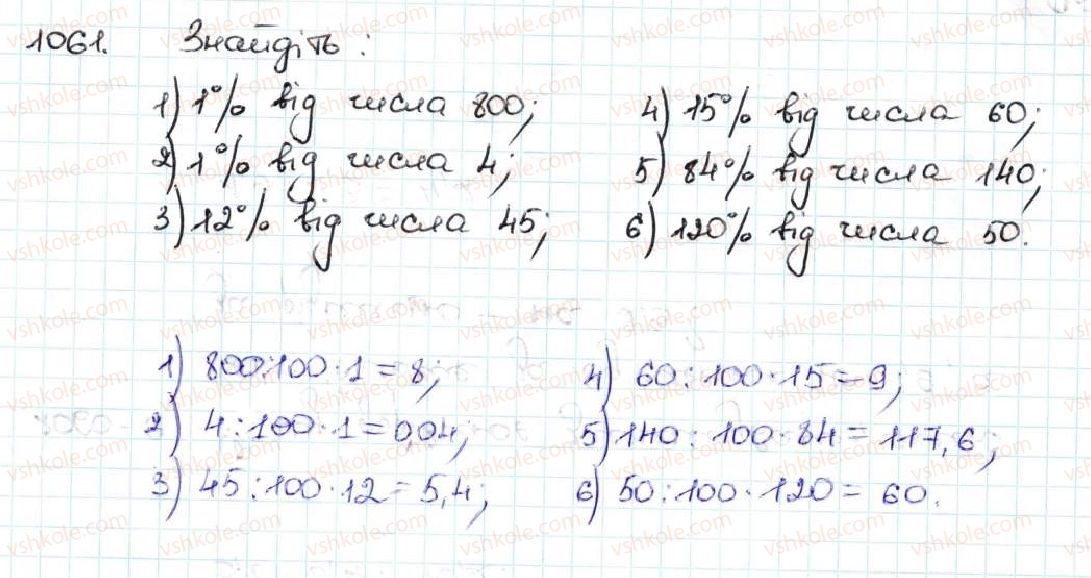 1061. Знайдіть:
1) 1% від числа 800;
2) 1% від числа 4;
3) 12% від числа 45;
4) 15% від числа 60;
5) 84% від числа 140;
6) 120% від числа 50.
1) 800:100·1=8;
2) 4:100·1=0,04;
3) 45:100·12=5,4;
4) 60:100·15=9;
5) 140:100·84=117,6;
6) 50:100·120=60.
vshkole.com